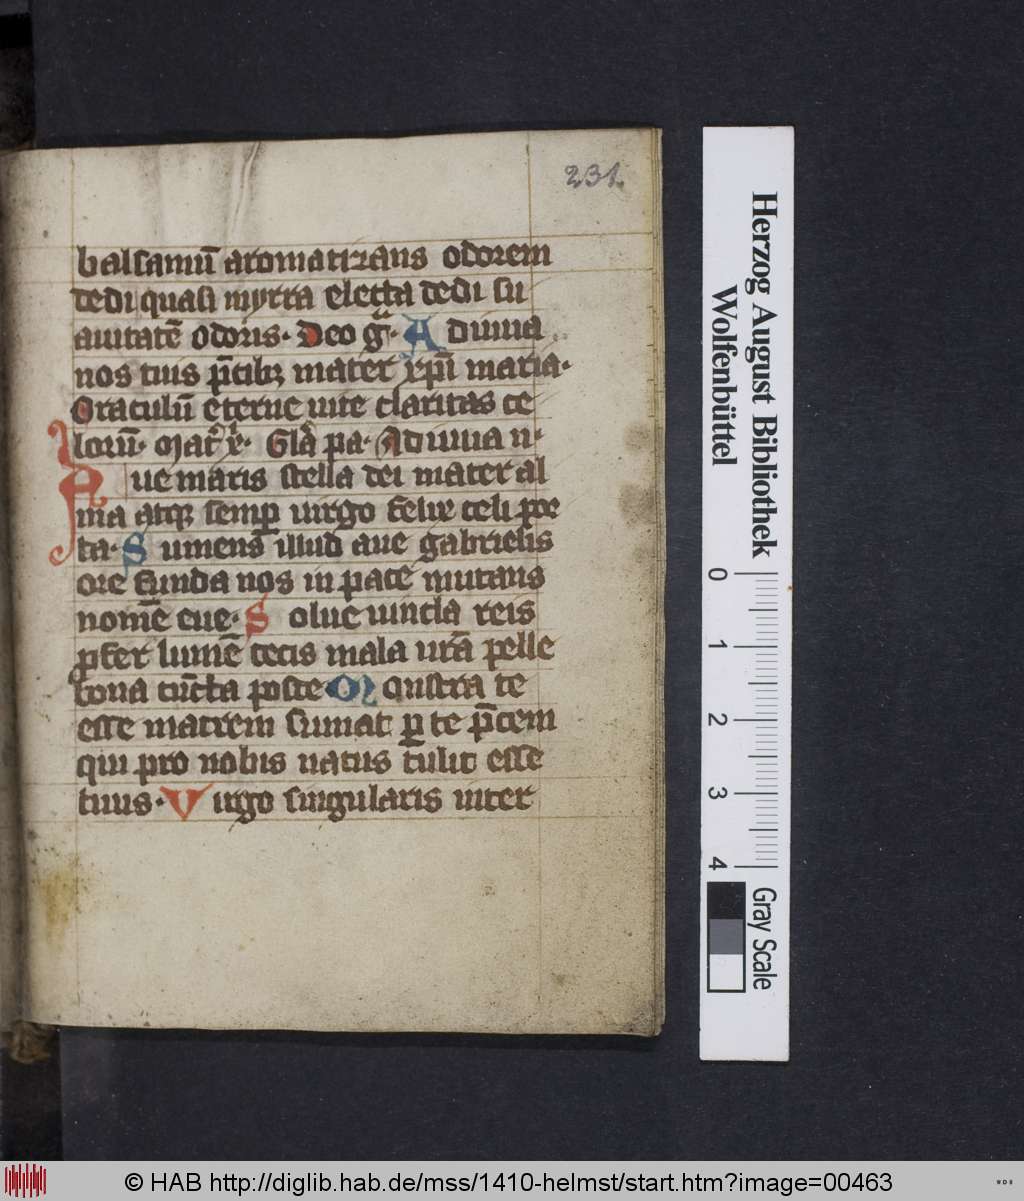 231.
balsamū aromatizans odorem
dedi quasi myrra electa dedi su
auitatē odoris. Deo gͣ. Adiuua
nos tuis p̄cibꝫ mater xp̄i maria.
Oraculū eterne uite claritas ce
lorū. Mat̄ x̄. Glā pa. Adiuua n.
Aue maris stella dei mater al
ma atqꝫ semꝑ uirgo felix celi por
ta. Sumens illud aue gabrielis
ore funda nos in pace mutans
nomē eue. Solue uincla reis
ꝓfer lumē cecis mala urā pelle
bona cūcta posce Monstra te
esse matrem sumat ꝑ te p̄cem
qui pro nobis natus tulit esse
tuus. Virgo singularis inter
Herzog August Bibliothek
Wolfenbüttel
0 1 2 3 4
Gray Scale
© HAB http://diglib.hab.de/mss/1410-helmst/start.htm?image=00463